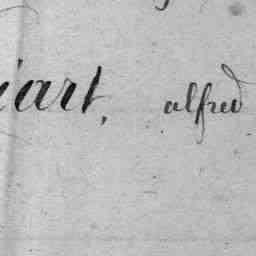 iart, alfred